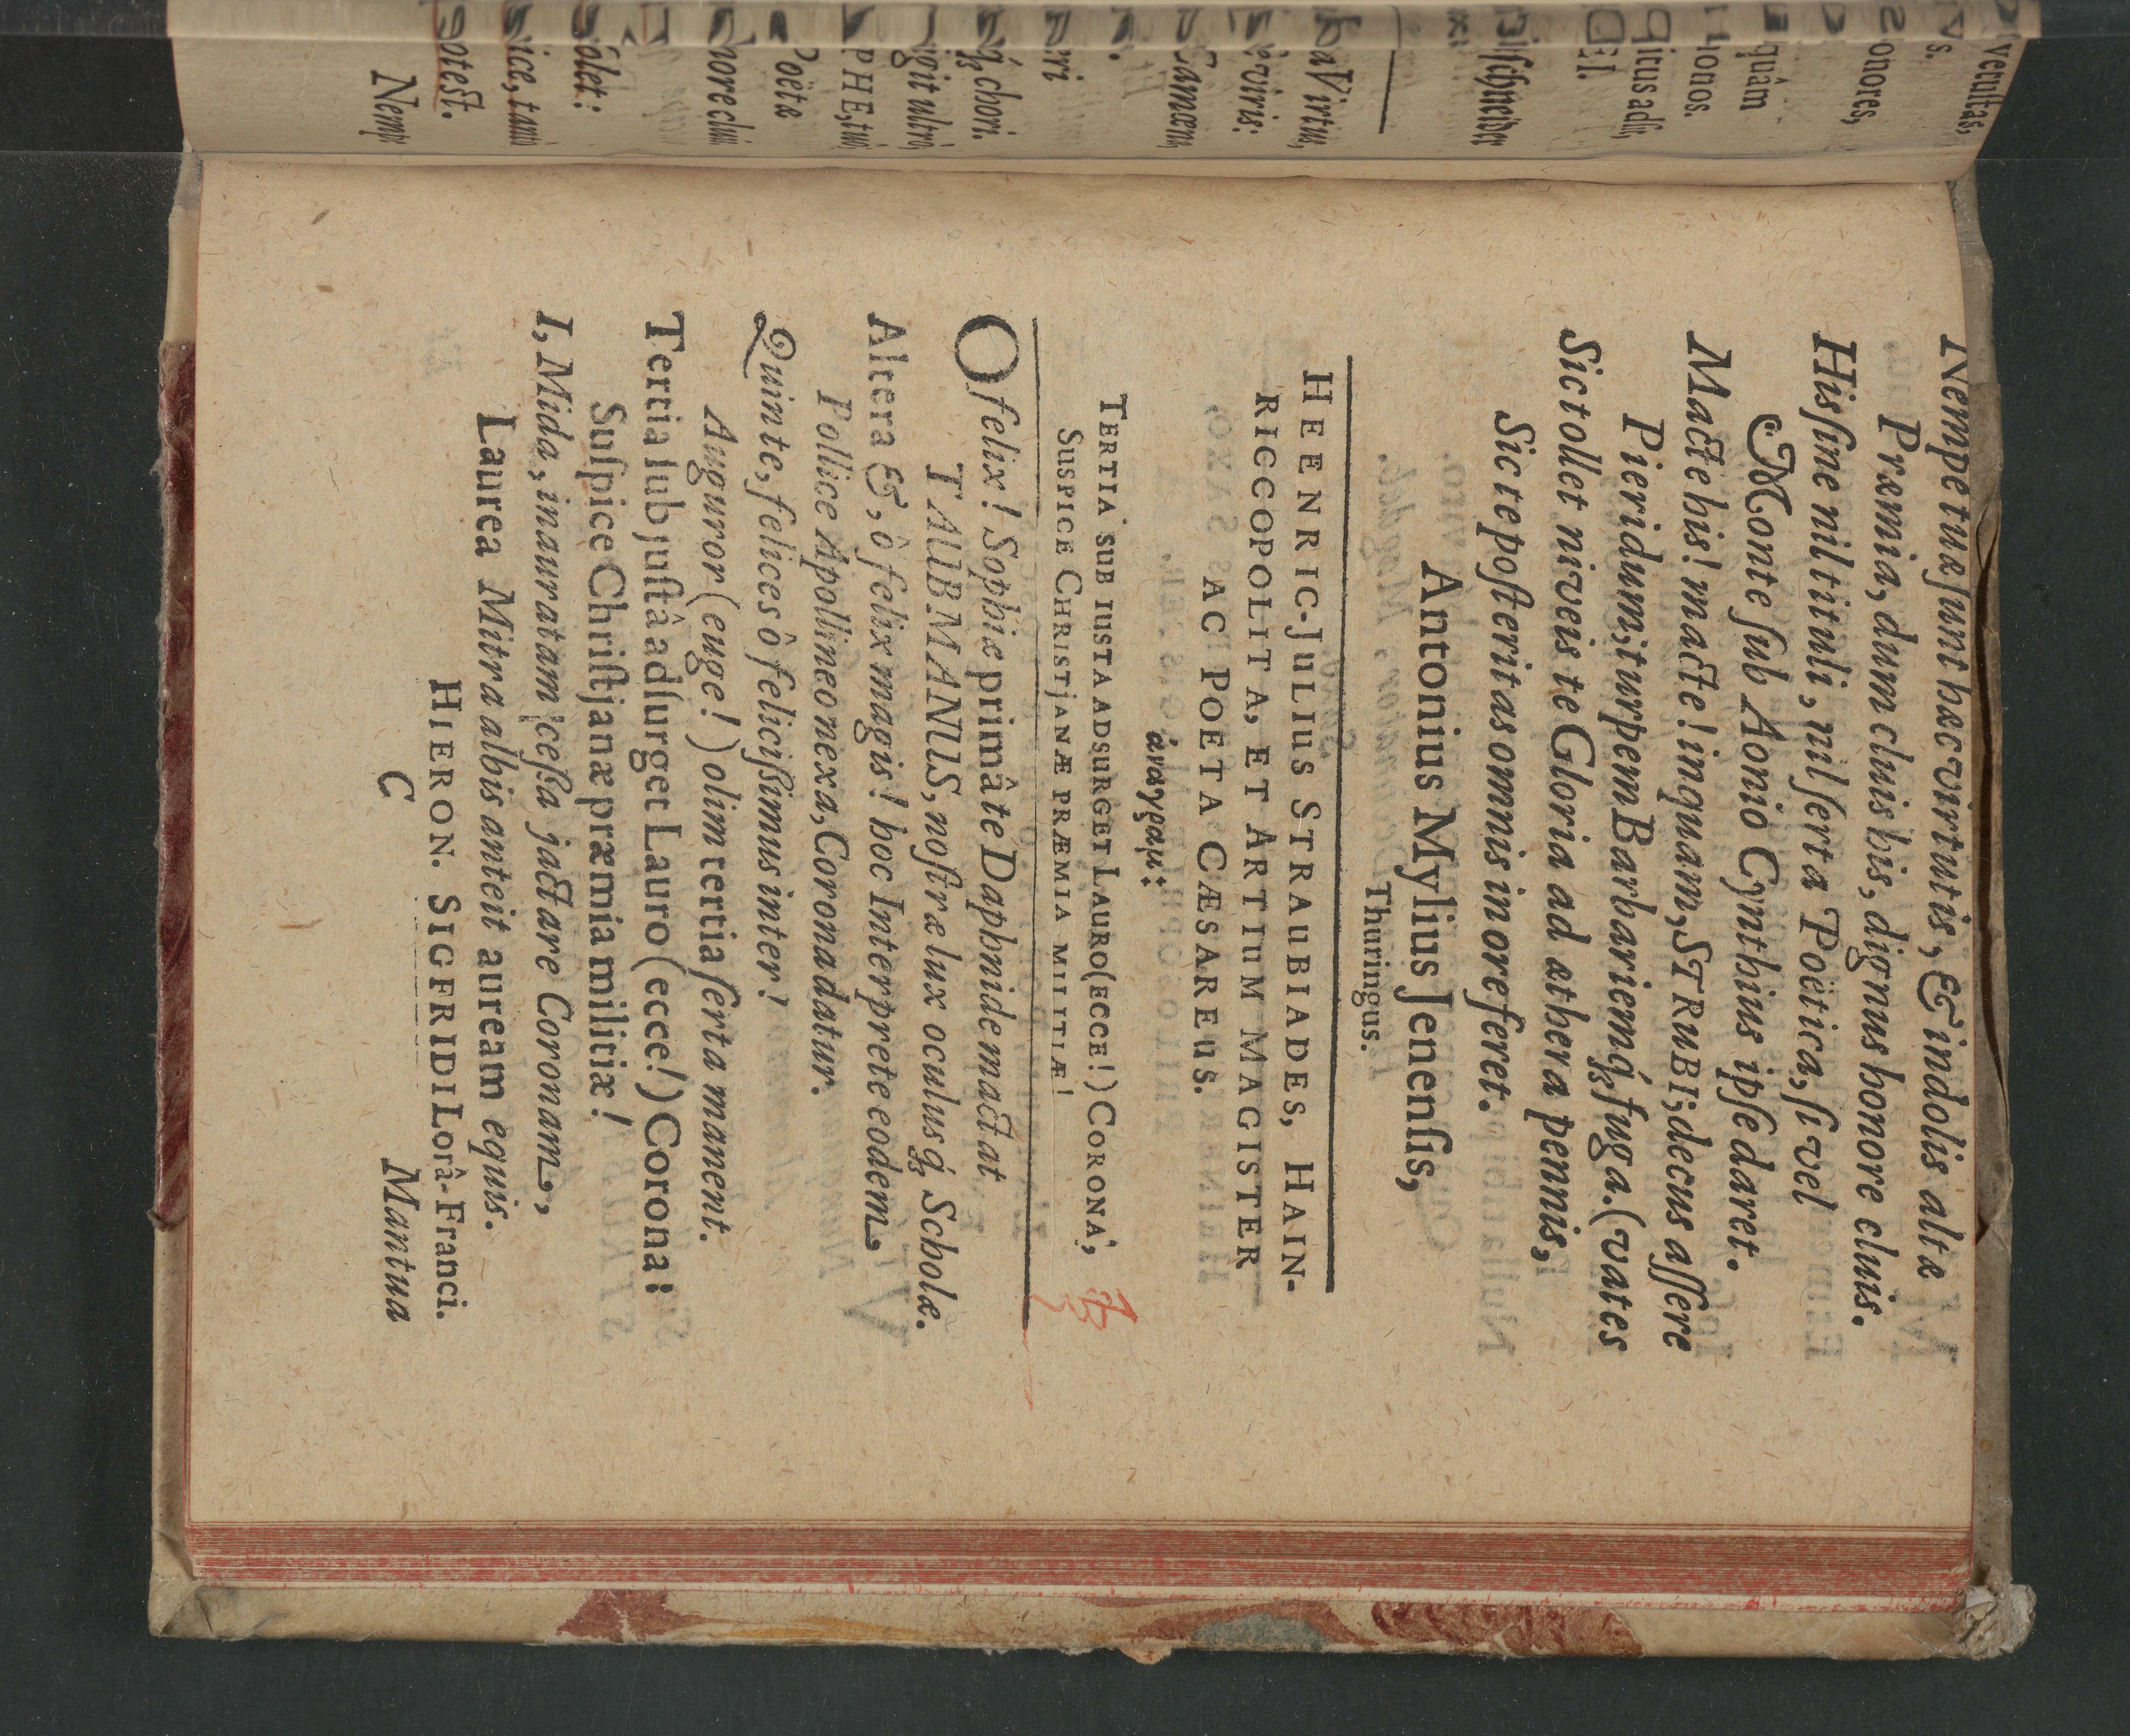 verultas,
vs.
onores,
quâm
ionos.
icus adsu,
EI.
ischneider
a Virtus,
viris:
Camœnæ,
ri
q́ꝫ chori.
git ultrò,
PHE, tui,
Poëta
nore clui
ôlet:
ice, tam
otest.
Nemp
Nempe tuæ ſunt hæc virtutis, & indolis altæ
Præmia, dum cluis his, dignus honore cluis.
His ſine nil tituli, nil ſerta Poëtica, ſi vel
Monte ſub Aonio Cynthius ipſe daret.
Macte his! macte! inquam, STRUBI; decus aſſere
Pieridum; turpem Barbariemq́ꝫ fuga. (vates
Sic tollet niveis te Gloria ad æthera pennis,
Sic te poſteritas omnis in ore feret.
Antonius Mylius Jenenſis,
Thuringus.
HEENRIC-JULIUS STRAUBIADES, HAIN-
RICCOPOLITA, ET ARTIUM MAGISTER
AC POETA CÆSAREUS.
ἀναγραμ:
TERTIA SUB IUSTA ADSURGET LAURO (ECCE!) CORONA;
SUSPICE CHRISTJANÆ PRÆMIA MILITIÆ!
O felix! Sophiæ primâ te Daphnide mactat
TAUBMANUS, noſtræ lux oculusq́ꝫ Scholæ.
Altera &, ô felix magis! hoc Interprete eodem,
Pollice Apollineo nexa, Corona datur.
Quinte, felices ô feliciſſimus inter!
Auguror (euge!) olim tertia ſerta manent.
Tertia ſub juſtâ adſurget Lauro (ecce!) Corona:
Suſpice Chriſtjanæ præmia militiæ!
I, Mida, inauratam ceſſa jactare Coronam,
Laurea Mitra albis anteit auream equis.
HIERON. SIGFRIDI Lorâ-Franci.
C
Mantua